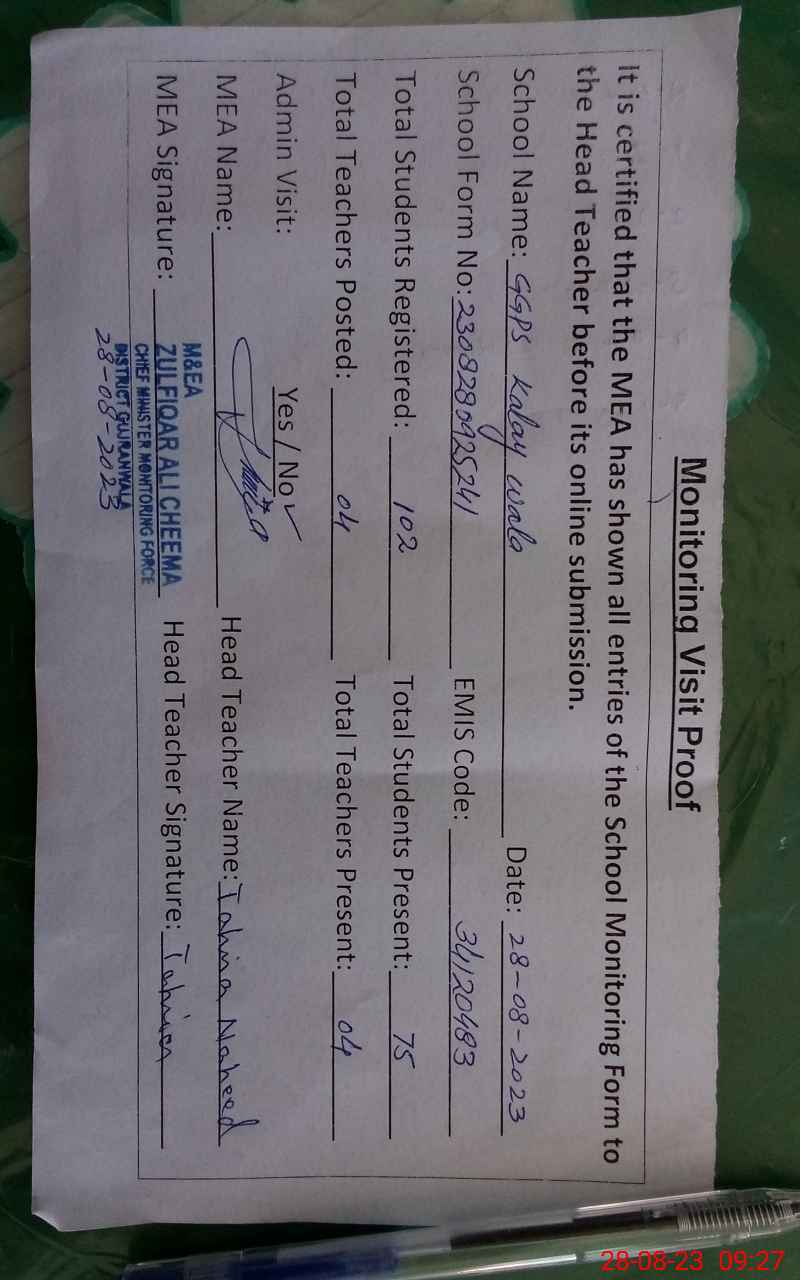 Monitoring Visit Proof
It is certified that the MEA has shown all entries of the School Monitoring Form to
the Head Teacher before its online submission.
School Name: GGPS Kalay wala Date: 28-08-2023
School Form No: 2308280925241 EMIS Code: 34120483
Total Students Registered: 102 Total Students Present: 75
Total Teachers Posted: 04 Total Teachers Present: 04
Admin Visit: Yes / No ✓
MEA Name: Head Teacher Name: Tahira Naheed
MEA Signature: Head Teacher Signature: Tahira
M&EA
ZULFIQAR ALI CHEEMA
CHIEF MINISTER MONITORING FORCE
DISTRICT GUJRANWALA
28-08-2023
28-08-23 09:27